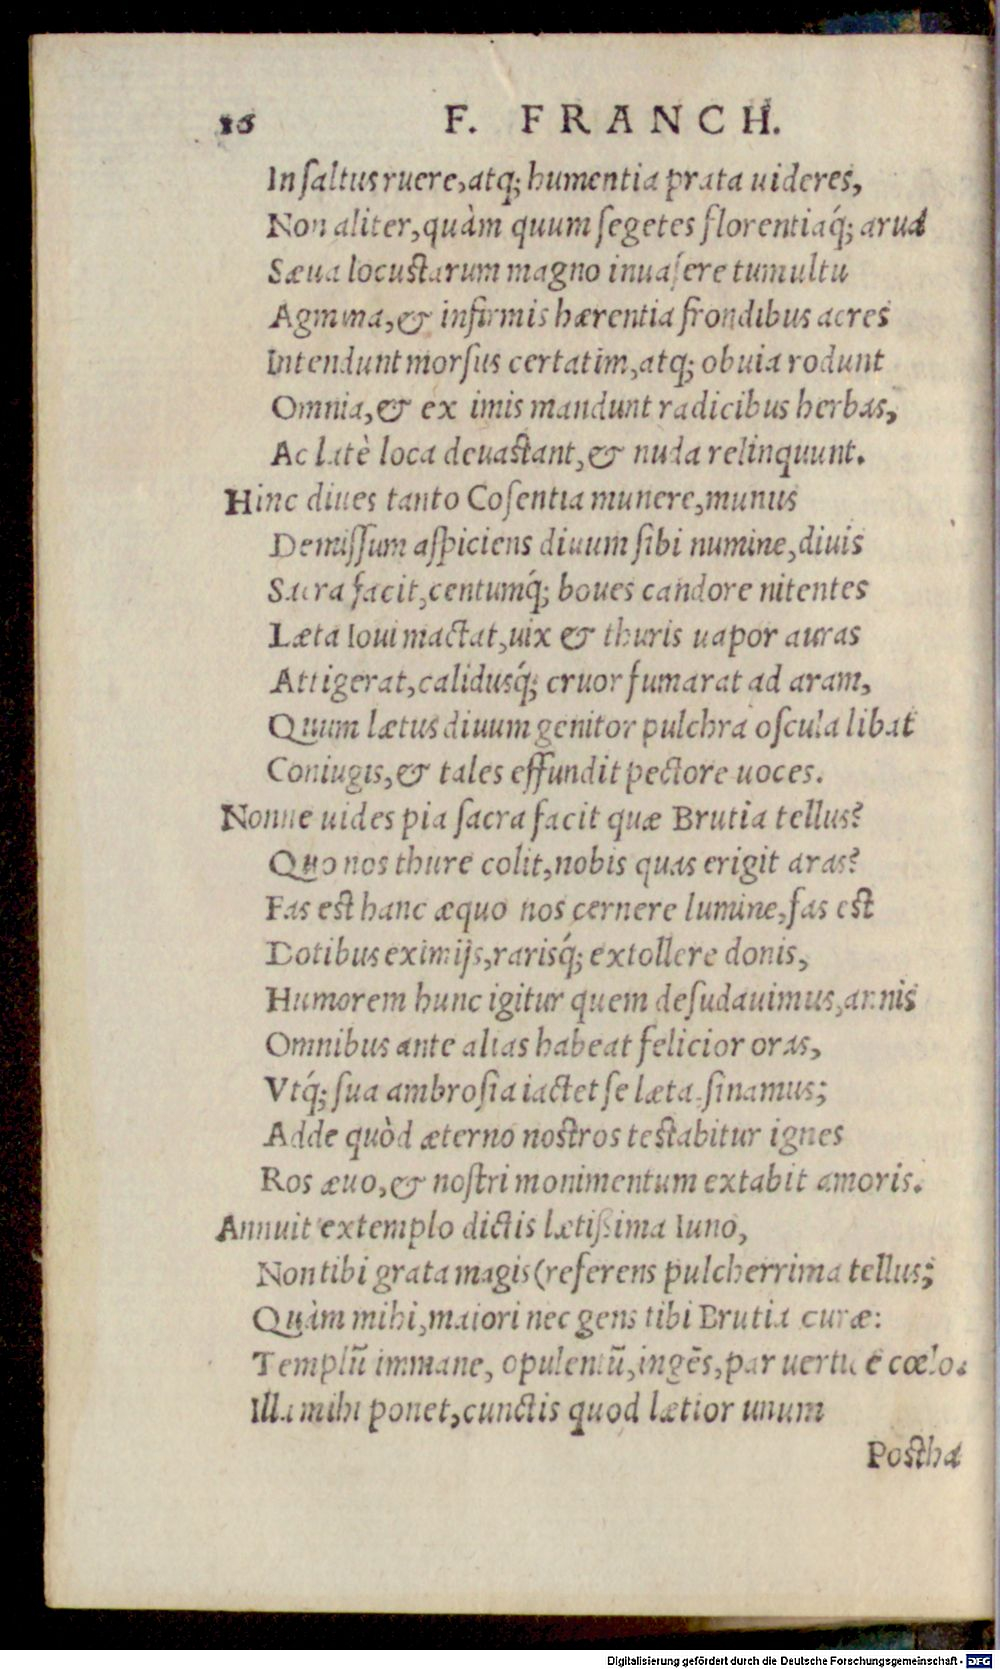 16 F. FRANCH.
In saltus ruere, atq; humentia prata uideres,
Non aliter, quàm quum segetes florentiaq́; arua
Sæua locustarum magno inuasere tumultu
Agmina, & infirmis hærentia frondibus acres
Intendunt morsus certatim, atq; obuia rodunt
Omnia, & ex imis mandunt radicibus herbas,
Ac latè loca deuastant, & nuda relinquunt.
Hinc diues tanto Cosentia munere, munus
Demissum aspiciens diuum sibi numine, diuis
Sacra facit, centumq́; boues candore nitentes
Læta Ioui mactat, uix & thuris uapor auras
Attigerat, calidusq́; cruor fumarat ad aram,
Quum lætus diuum genitor pulchra oscula libat
Coniugis, & tales effundit pectore uoces.
Nonne uides pia sacra facit quæ Brutia tellus?
Quo nos thure colit, nobis quas erigit aras?
Fas est hanc æquo nos cernere lumine, fas est
Dotibus eximijs, rarisq́; extollere donis,
Humorem hunc igitur quem desudauimus, annis
Omnibus ante alias habeat felicior oras,
Vtq́; sua ambrosia iactet se læta sinamus;
Adde quòd æterno nostros testabitur ignes
Ros æuo, & nostri monimentum extabit amoris.
Annuit extemplo dictis lætißima Iuno,
Non tibi grata magis (referens pulcherrima tellus;
Quàm mihi, maiori nec gens tibi Brutia curæ:
Templū immane, opulentū, ingēs, par uertice cœlo.
Illa mihi ponet, cunctis quod lætior unum
Postha
Digitalisierung gefördert durch die Deutsche Forschungsgemeinschaft - DFG